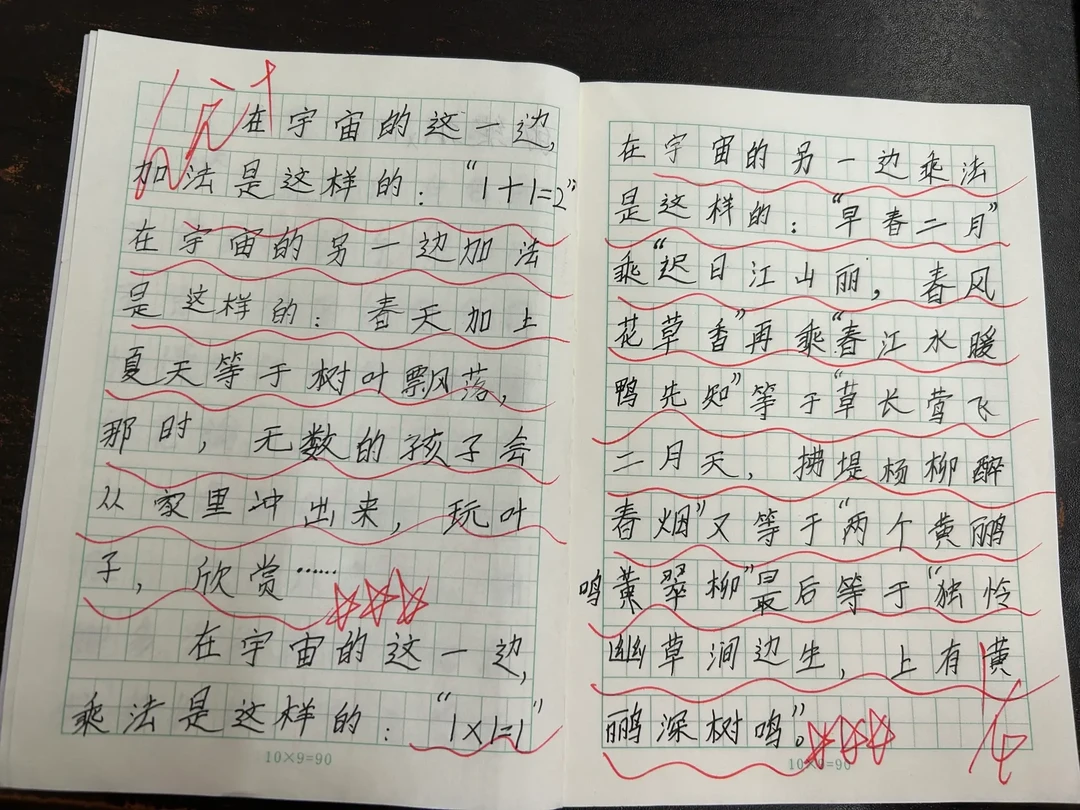 在宇宙的这一边,
加法是这样的:“1+1=2”
在宇宙的另一边加法
是这样的:春天加上
夏天等于树叶飘落,
那时,无数的孩子会
从家里冲出来,玩叶
子,欣赏……
在宇宙的这一边,
乘法是这样的:“1×1=1”
10×9=90
在宇宙的另一边乘法
是这样的:“早春二月”
乘“迟日江山丽,春风
花草香”再乘“春江水暖
鸭先知”等于“草长莺飞
二月天,拂堤杨柳醉
春烟”又等于“两个黄鹂
鸣黄翠柳”最后等于“独怜
幽草涧边生,上有黄
鹂深树鸣”。
10×9=90